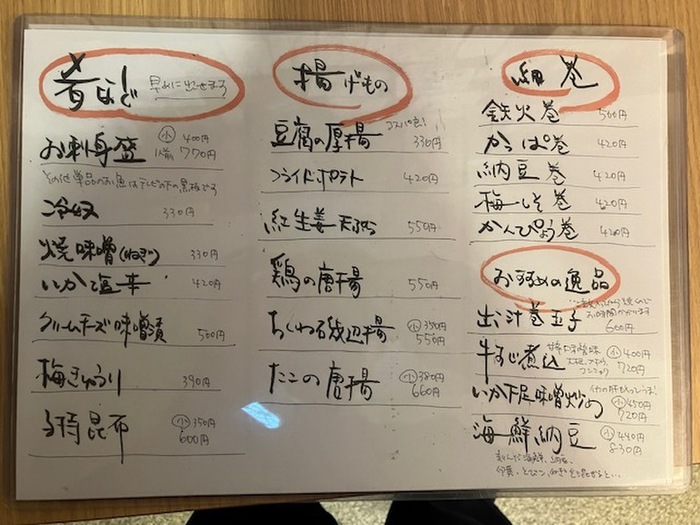 肴など 早めに出せまする
お刺身盛 小 400円
1人前 770円
その他単品のお魚はテレビの下の黒板でる
冷奴 330円
焼味噌(ねぎ) 330円
いか塩辛 420円
クリームチーズ味噌漬 500円
梅きゅうり 390円
子持昆布 小 350円
600円
揚げもの
豆腐の厚揚 コスパ良! 330円
フライドポテト 420円
紅生姜天ぷら 550円
鶏の唐揚 550円
ちくわ磯辺揚 小 350円
550円
たこの唐揚 小 380円
660円
細巻
鉄火巻 560円
かっぱ巻 420円
納豆巻 420円
梅しそ巻 420円
かんぴょう巻 420円
おすすめの逸品
お時間かかります
出汁巻玉子 600円
牛すじ煮込 小 400円
720円
コンニャク
いか下足味噌炒め 小 450円
720円
海鮮納豆 小 440円
830円